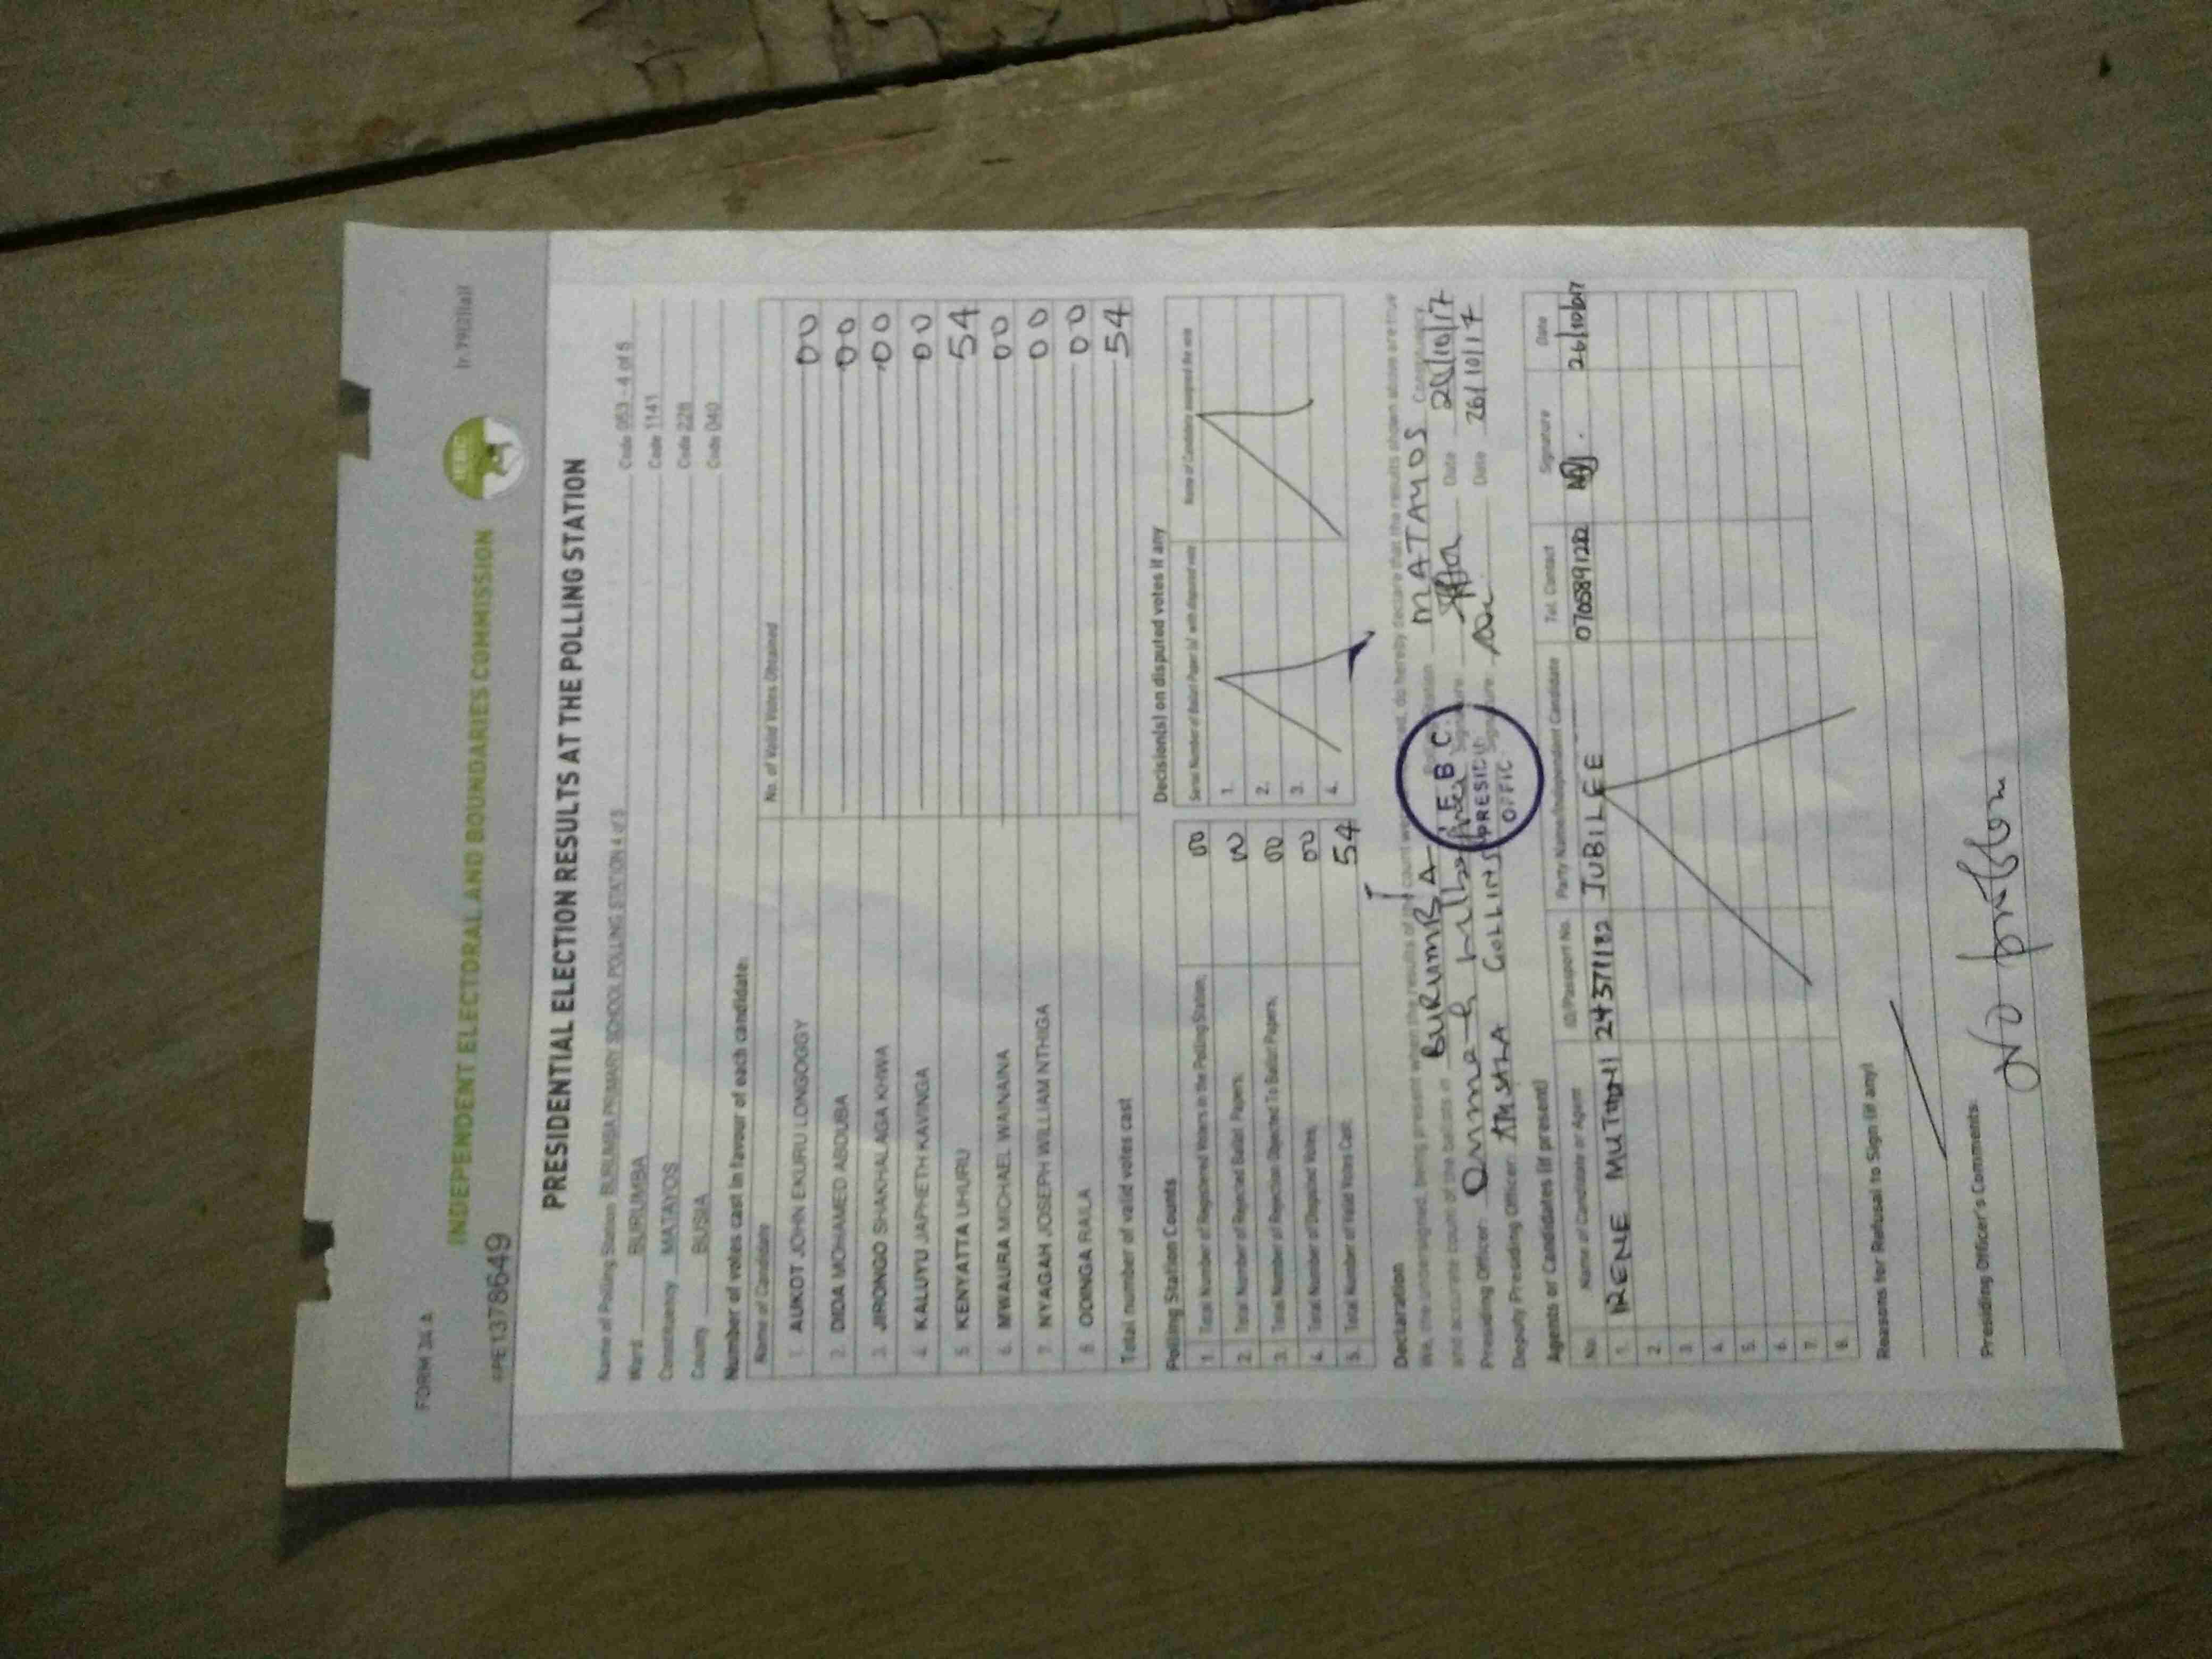 FORM 34 A
INDEPENDENT ELECTORAL AND BOUNDARIES COMMISSION
IEBC
#PE1378649
PRESIDENTIAL ELECTION RESULTS AT THE POLLING STATION
Name of Polling Station BURUMBA PRIMARY SCHOOL POLLING STATION 4 of 5 Code 053 - 4 of 5
Ward BURUMBA Code 1141
Constituency MATAYOS Code 228
County BUSIA Code 040
Number of votes cast in favour of each candidate:
Name of Candidate No. of Valid Votes Obtained
1. AUKOT JOHN EKURU LONGOGGY 00
2. DIDA MOHAMED ABDUBA 00
3. JIRONGO SHAKHALAGA KHWA 00
4. KALUYU JAPHETH KAVINGA 00
5. KENYATTA UHURU 54
6. MWAURA MICHAEL WAINAINA 00
7. NYAGAH JOSEPH WILLIAM NTHIGA 00
8. ODINGA RAILA 00
Total number of valid votes cast 54
Polling Station Counts
1. Total Number of Registered Voters in the Polling Station; 00
2. Total Number of Rejected Ballot Papers; 00
3. Total Number of Rejection Objected To Ballot Papers; 00
4. Total Number of Disputed Votes; 00
5. Total Number of Valid Votes Cast; 54
Decision(s) on disputed votes if any
Serial Number of Ballot Paper (s) with disputed vote Name of Candidate assigned the vote
1.
2.
3.
4.
Declaration
We, the undersigned, being present when the results of the count were announced, do hereby declare that the results shown above are true
and accurate count of the ballots in BURUMBA MATAYOS Constituency
Presiding Officer: Signature Date 26/10/17
Deputy Presiding Officer: COLLINS Signature Date 26/10/17
IEBC
PRESIDING
OFFIC
Agents or Candidates (if present)
No. Name of Candidate or Agent ID/Passport No. Party Name/Independent Candidate Tel. Contact Signature Date
1. IRENE 24371182 JUBILEE 26/10/2017
2.
3.
4.
5.
6.
7.
8.
Reasons for Refusal to Sign (if any)
Presiding Officer's Comments:
No problem